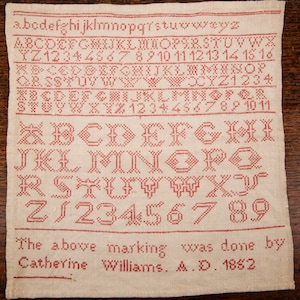 abcdefghijklmnopqrstuvwxyz
ABCDEFGHIJKLMNOPQRSTUVWX
YZ12345678910111213141516
ABCDEFGHIJKLMNOP
QRSTUVWXYZ1234
ABCDEFGHIJKLMNOPQR
STUVWXYZ1234567891011
ABCDEFGHI
JKLMNOPQ
RSTUVWXY
Z123456789
The above marking was done by
Catherine Williams. A.D. 1852